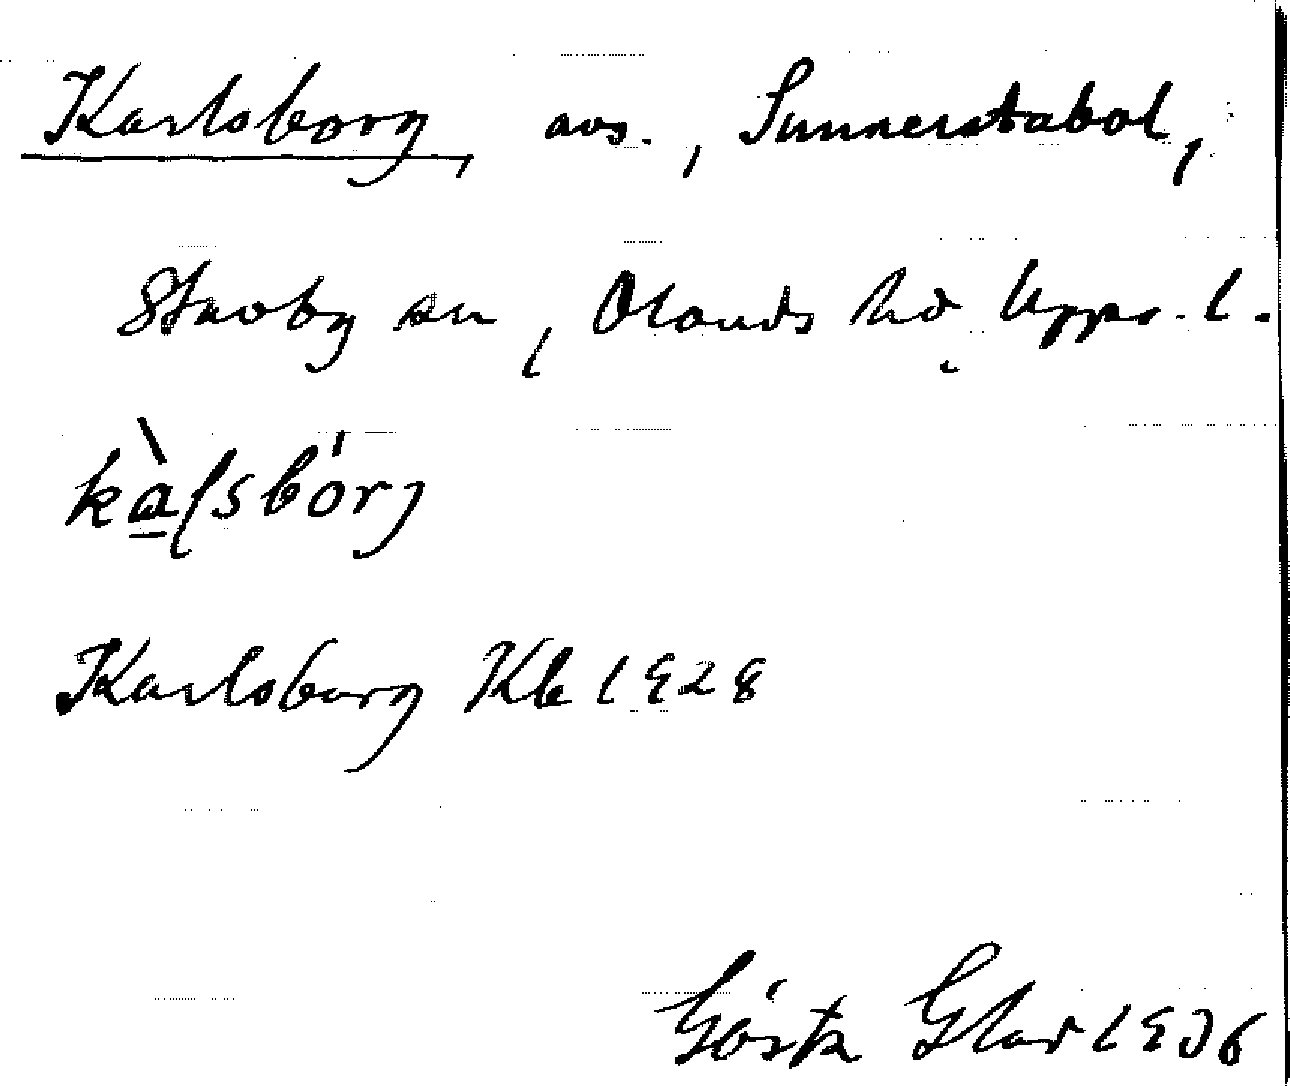 Karlsborg, avs., Sunnerstabol,
Stavby sn, Olands hd Upps. l.
kàlsbórj
Karlsborg Kb 1928
Gösta Glad 1936